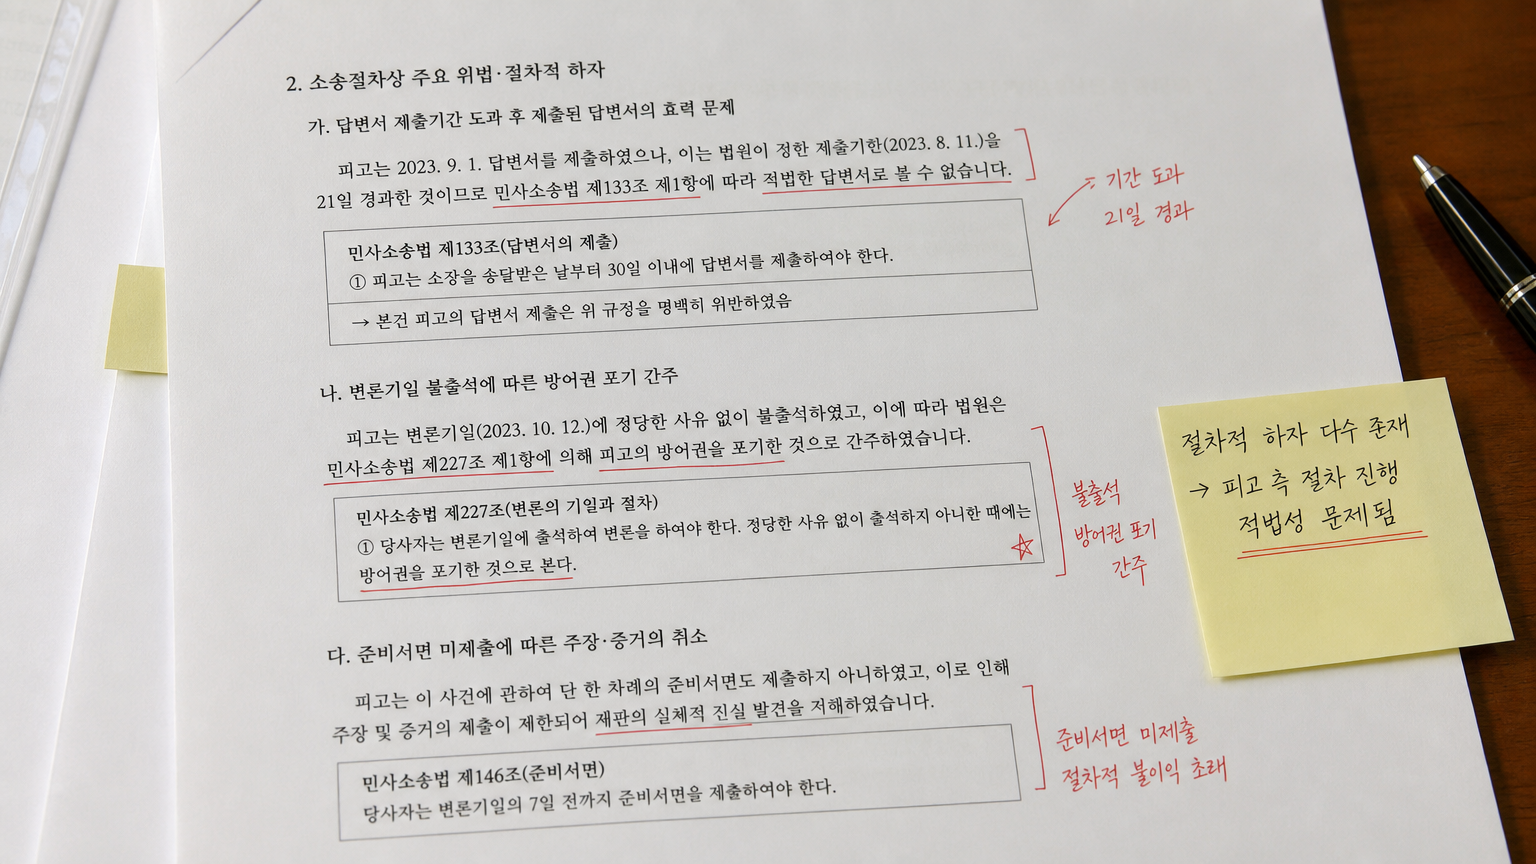 2. 소송절차상 주요 위법·절차적 하자
가. 답변서 제출기간 도과 후 제출된 답변서의 효력 문제
피고는 2023. 9. 1. 답변서를 제출하였으나, 이는 법원이 정한 제출기한(2023. 8. 11.)을
21일 경과한 것이므로 민사소송법 제133조 제1항에 따라 적법한 답변서로 볼 수 없습니다.
기간 도과
21일 경과
민사소송법 제133조(답변서의 제출)
① 피고는 소장을 송달받은 날부터 30일 이내에 답변서를 제출하여야 한다.
→ 본건 피고의 답변서 제출은 위 규정을 명백히 위반하였음
나. 변론기일 불출석에 따른 방어권 포기 간주
피고는 변론기일(2023. 10. 12.)에 정당한 사유 없이 불출석하였고, 이에 따라 법원은
민사소송법 제227조 제1항에 의해 피고의 방어권을 포기한 것으로 간주하였습니다.
민사소송법 제227조(변론의 기일과 절차)
① 당사자는 변론기일에 출석하여 변론을 하여야 한다. 정당한 사유 없이 출석하지 아니한 때에는
방어권을 포기한 것으로 본다.
불출석
방어권 포기
간주
절차적 하자 다수 존재
→ 피고 측 절차 진행
적법성 문제됨
다. 준비서면 미제출에 따른 주장·증거의 취소
피고는 이 사건에 관하여 단 한 차례의 준비서면도 제출하지 아니하였고, 이로 인해
주장 및 증거의 제출이 제한되어 재판의 실체적 진실 발견을 저해하였습니다.
민사소송법 제146조(준비서면)
당사자는 변론기일의 7일 전까지 준비서면을 제출하여야 한다.
준비서면 미제출
절차적 불이익 초래